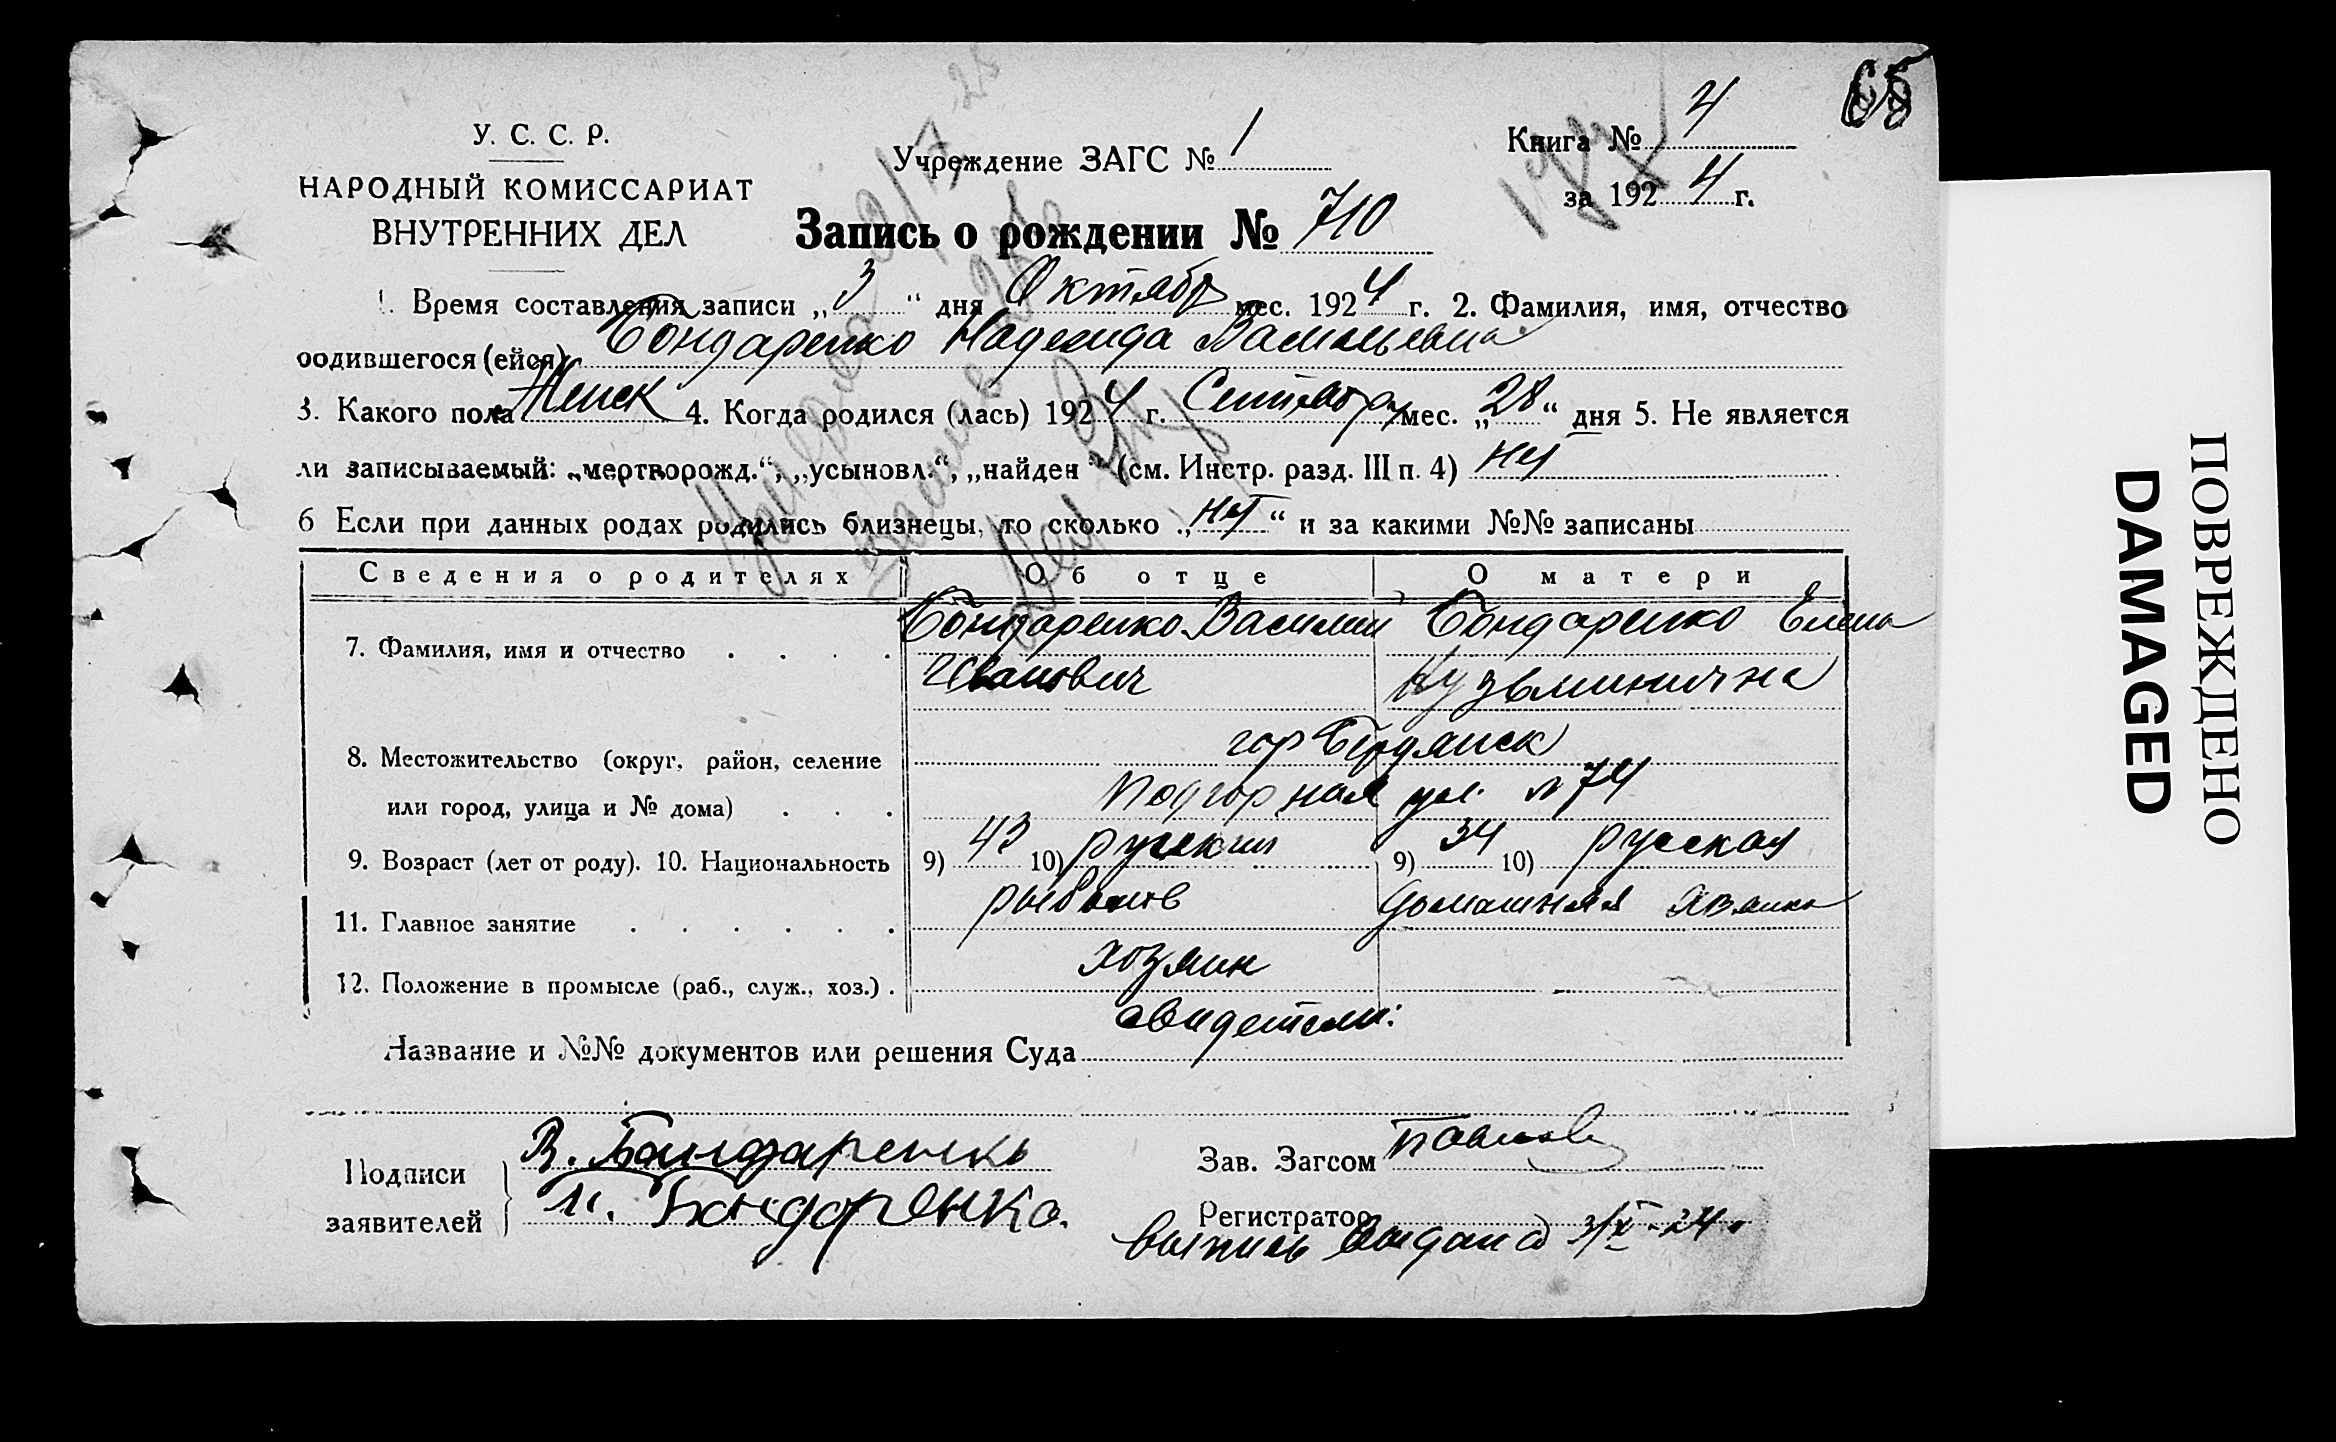 65
У. С. С. Р.
НАРОДНЫЙ КОМИССАРИАТ
ВНУТРЕННИХ ДЕЛ
Учреждение ЗАГС № 1
Книга № 4
за 1924 г.
Запись о рождении № 710
1. Время составления записи „3“ дня Октября мес. 1924 г. 2. Фамилия, имя, отчество
родившегося (ейся) Бондаренко Надежда Васильевна
3. Какого пола Женск 4. Когда родился (лась) 1924 г. Сентября мес. „28“ дня 5. Не является
ли записываемый: „мертворожд.“, „усыновл.“, „найден“ (см. Инстр. разд. III п. 4) нет
6 Если при данных родах родились близнецы, то сколько „нет“ и за какими №№ записаны
Сведения о родителях Об отце О матери
7. Фамилия, имя и отчество . . . . Бондаренко Василий Бондаренко Елена
Иванович Кузьминична
гор Бердянск
8. Местожительство (округ, район, селение
или город, улица и № дома) . . . Подгорная ул. № 74
9. Возраст (лет от роду). 10. Национальность 9) 43 10) русский 9) 34 10) русская
11. Главное занятие . . . . . . рыболов домашняя хозяйка
12. Положение в промысле (раб., служ., хоз.) . хозяин
свидетели:
Название и №№ документов или решения Суда
Подписи
заявителей
В. Бондаренко
И. Бондаренко.
Зав. Загсом Павлов
Регистратор
выпись выдана 3/X-24.
ПОВРЕЖДЕНО
DAMAGED